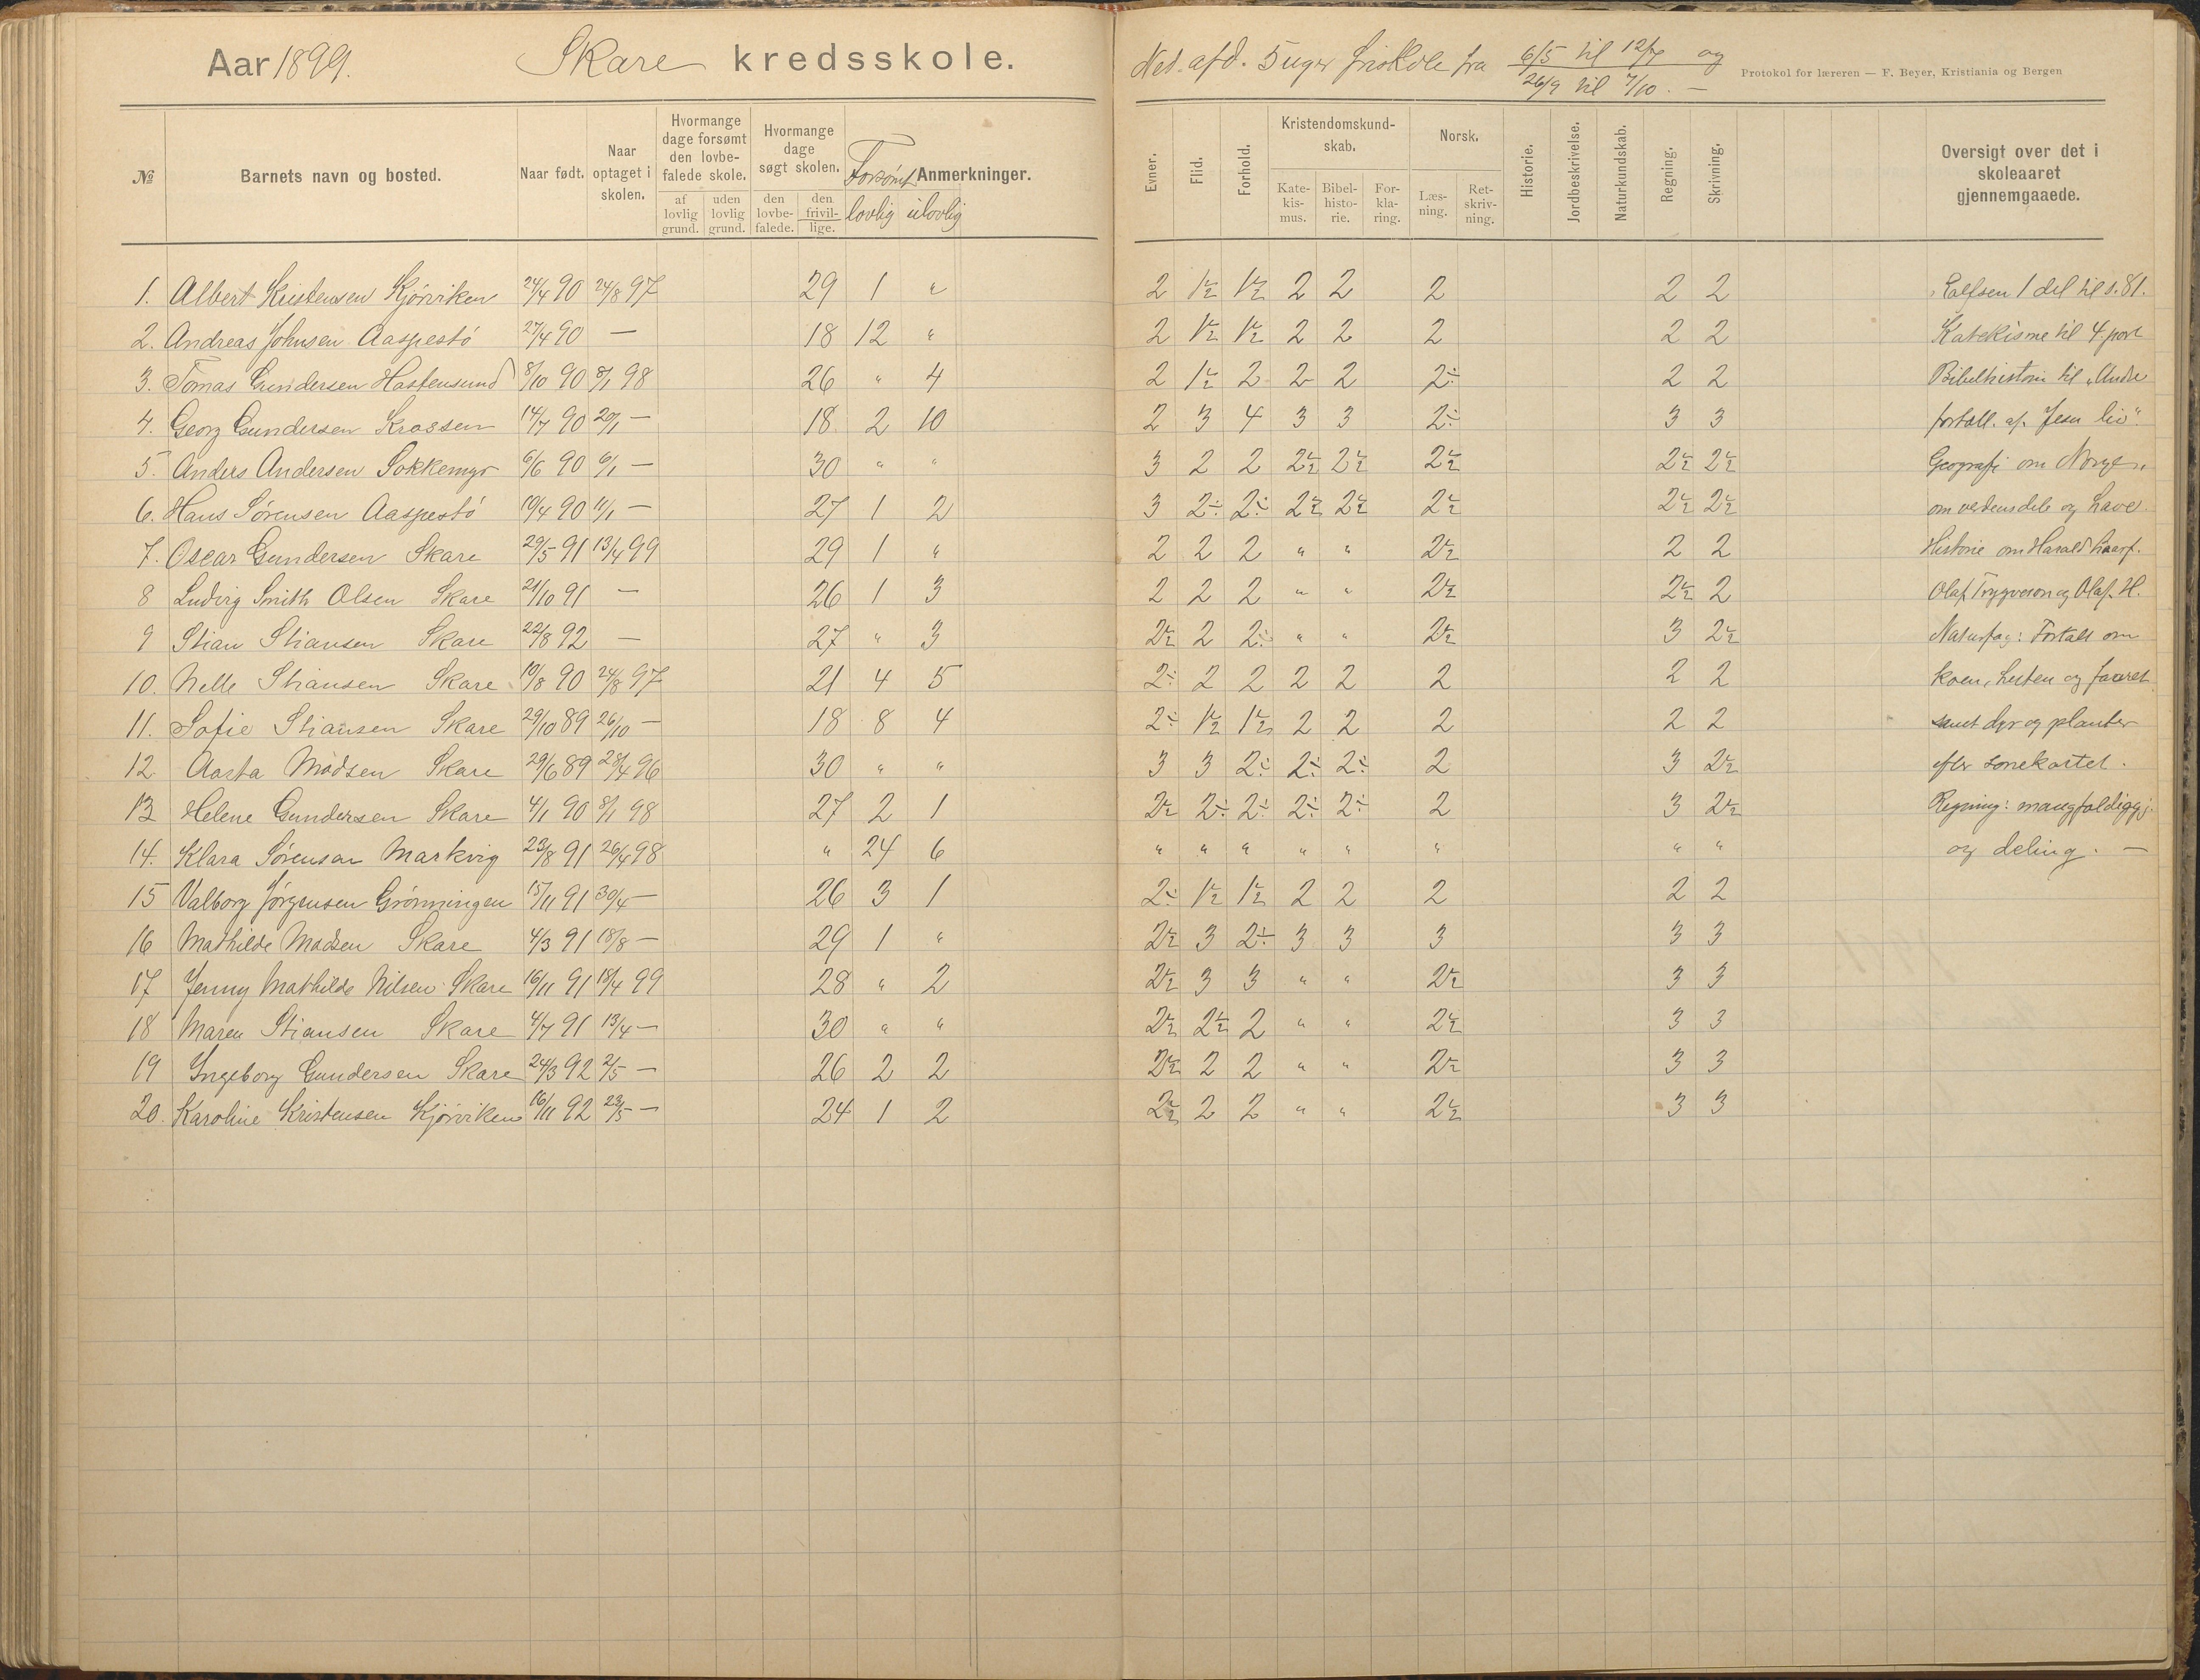 Aar 1899. Skare kredsskole.
Ned. afd. 5 uger friskole fra 6/5 til 12/7 og
26/9 til 7/10. —
Protokol for læreren — F. Beyer, Kristiania og Bergen
№ Barnets navn og bosted. Naar født. Naar optaget i skolen. Hvormange dage forsømt den lovbefalede skole. af lovlig grund. uden lovlig grund. Hvormange dage søgt skolen. den lovbefalede. den frivillige. Forsømt lovlig ulovlig Anmerkninger.
Evner. Flid. Forhold. Kristendomskundskab. Katekismus. Bibelhistorie. Forklaring. Norsk. Læsning. Retskrivning. Historie. Jordbeskrivelse. Naturkundskab. Regning. Skrivning. Oversigt over det i skoleaaret gjennemgaaede.
1. Albert Kristensen Kjørviken 24/4 90 24/8 97 29 1 " 2 1½ 1½ 2 2 2 2 2 Rolfsen 1 del til s. 81.
2. Andreas Johnsen Aaspestø 27/4 90 — 18 12 " 2 1½ 1½ 2 2 2 2 2 Katekisme til 4 part
3. Tomas Gundersen Hastensund 8/10 90 8/1 98 26 " 4 2 1½ 2 2 2 2÷ 2 2 Bibelhistorie til "Andre
4. Georg Gundersen Krossen 14/7 90 20/1 — 18 2 10 2 3 4 3 3 2÷ 3 3 fortæll. af Jesu liv".
5. Anders Andersen Sokkemyr 6/6 90 6/1 — 30 " " 3 2 2 2½ 2½ 2½ 2½ 2½ Geografi om Norge,
6. Hans Sørensen Aaspestø 10/4 90 11/1 — 27 1 2 3 2÷ 2÷ 2½ 2½ 2½ 2½ 2½ om verdensdele og have.
7. Oscar Gundersen Skare 29/5 91 13/4 99 29 1 " 2 2 2 " " 2½ 2 2 Historie om Harald haarf.
8 Ludvig Smith Olsen Skare 21/10 91 — 26 1 3 2 2 2 " " 2½ 2½ 2 Olaf Trygveson og Olaf. H.
9 Stian Stiansen Skare 22/8 92 — 27 " 3 2½ 2 2÷ " " 2½ 3 2½ Naturfag: Fortalt om
10. Nelle Stiansen Skare 10/8 90 24/8 97 21 4 5 2÷ 2 2 2 2 2 2 2 koen, hesten og faaret
11. Sofie Stiansen Skare 29/10 89 26/10 — 18 8 4 2÷ 1½ 1½ 2 2 2 2 2 samt dyr og planter
12 Aasta Madsen Skare 29/6 89 28/4 96 30 " " 3 3 2÷ 2÷ 2÷ 2 3 2½ efter sonekartet.
13 Helene Gundersen Skare 4/1 90 8/1 98 27 2 1 2½ 2÷ 2÷ 2÷ 2÷ 2 3 2½ Regning: mangfoldiggj.
14. Klara Sørensen Markvig 23/8 91 26/4 98 " 24 6 " " " " " " " " og deling. —
15 Valborg Jørgensen Grønningen 15/11 91 30/4 — 26 3 1 2÷ 1½ 1½ 2 2 2 2 2
16 Mathilde Madsen Skare 4/3 91 18/8 — 29 1 " 2½ 3 2÷ 3 3 3 3 3
17 Jenny Mathilde Nilsen Skare 16/11 91 18/4 99 28 " 2 2½ 3 3 " " 2½ 3 3
18 Maren Stiansen Skare 4/7 91 13/4 — 30 " " 2½ 2½ 2 " " 2½ 3 3
19 Ingeborg Gundersen Skare 24/3 92 2/5 — 26 2 2 2½ 2 2 " " 2½ 3 3
20. Karoline Kristensen Kjørviken 16/11 92 23/5 — 24 1 2 2½ 2 2 " " 2½ 3 3